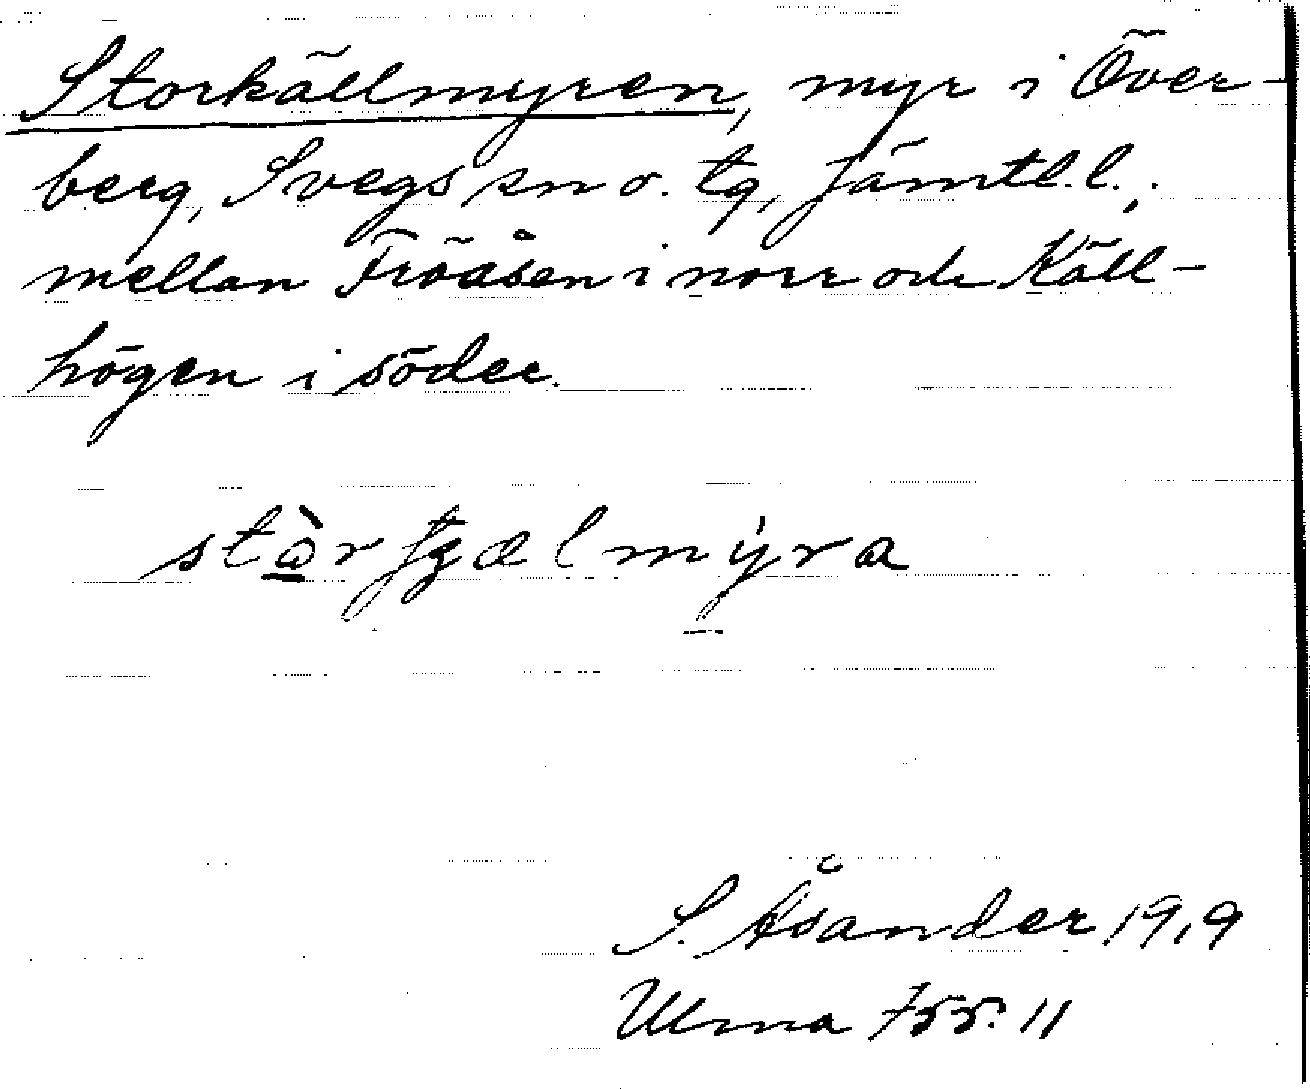 Storkällmyren, myr i Över-
berg, Svegs sn o. tg, Jämtl. l.,
mellan Fröåsen i norr och Käll-
högen i söder.
mýra
S. Åsander 1919
Ulma 755:11